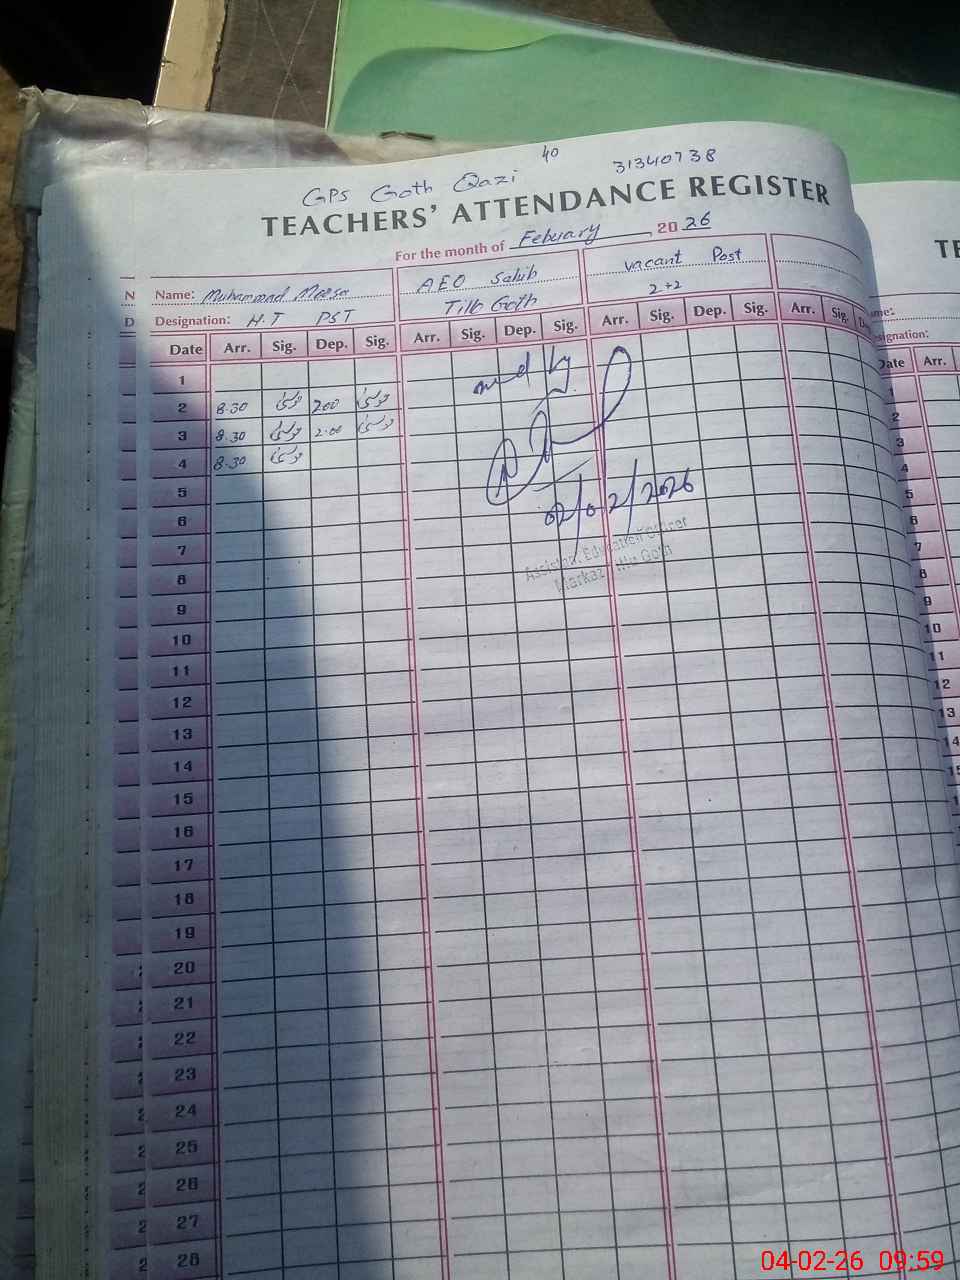 40
31340738
GPS Goth Qazi
TEACHERS' ATTENDANCE REGISTER
For the month of Feburary 2026
Name: Muhammad Moosa
AEO Sahib
vacant Post
Designation: H.T PST
Tillo Goth
2+2
Date Arr. Sig. Dep. Sig. Arr. Sig. Dep. Sig. Arr. Sig. Dep. Sig. Arr. Sig.
1
2 8.30 200
3 8.30 2.00
4 8.30
5
02/02/2026
6
Assistant Education Officer
7
Markaz Tillo Goth
8
9
10
11
12
13
14
15
16
17
18
19
20
21
22
23
24
25
26
27
28
TE
Name:
Designation:
Date Arr.
2
3
4
5
6
7
8
9
10
11
12
13
14
04-02-26 09:59